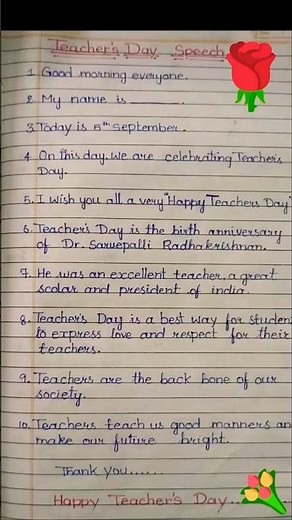 Teacher's Day Speech
1. Good morning everyone.
2. My name is ______.
3. Today is 5th September.
4. On this day. We are celebrating Teacher's
Day.
5. I wish you all a very "Happy Teachers Day"
6. Teacher's Day is the birth anniversary
of Dr. Sarvepalli Radhakrishnan.
7. He was an excellent teacher, a great
scolar and president of india.
8. Teacher's Day is a best way for studen
to express love and respect for their
teachers.
9. Teachers are the back bone of our
society.
10. Teachers teach us good manners an
make our future bright.
Thank you......
Happy Teacher's Day......